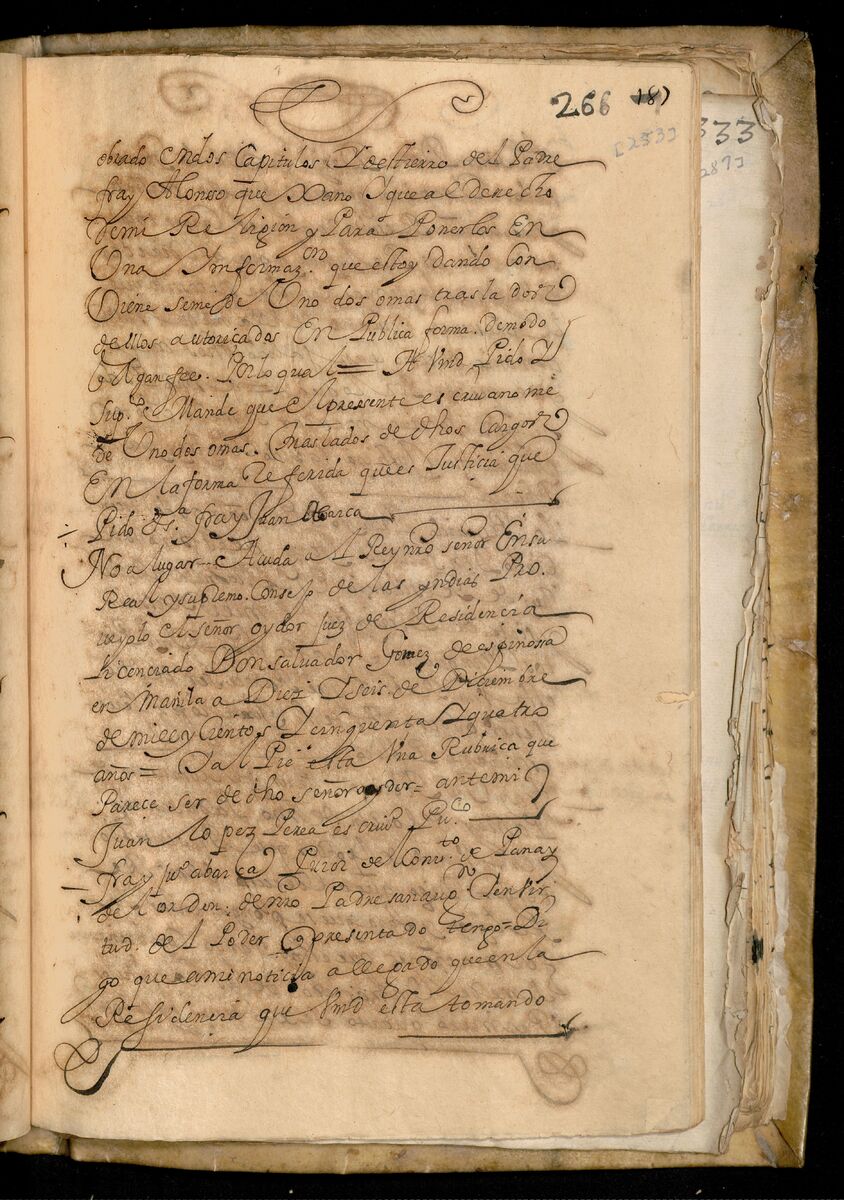 266 187
[253]
333
287]
obrado enlos Capitulos Y destierro del Padre
fray Alonsso que Xano Y que al derecho
demi Religion y Para Ponerlos En
Una Informaz.on que estoy dando Con
Viene seme de Uno dos omas traslados
dellos autoricados En Publica forma. demodo
q hagan fee. Porlo qual = A Vmd Pido Y
Sup.co Mande que el presente escriuano me
de Uno dos omas. traslados de dhos Cargos
En la forma Referida que es Justicia que
Pido &.a fray Juan Abarca
No a lugar. Acuda al Rey nro señor En su
Real y supremo. Consejo de las yndias Pro.
ueyolo el señor oydor Juez de Residencia
Licenciado Don saluador Gomez de espinossa
en Manila a Diez Y seis. de Diciembre
de mill y Cientos Y cinquenta Y quatro
años = Y al Pie esta Una Rubrica que
Parece ser de dho señor oydor = antemi
Juan lopez Perea escriu.o Pu.co
fray Ju.o abarca Prior de Conu.to de Panay
de la orden. de nro Padre san augn En Vir
tud. del Poder q presentado tengo = Di
go que ami noticia a llegado que en la
Residencia que Vmd esta tomando